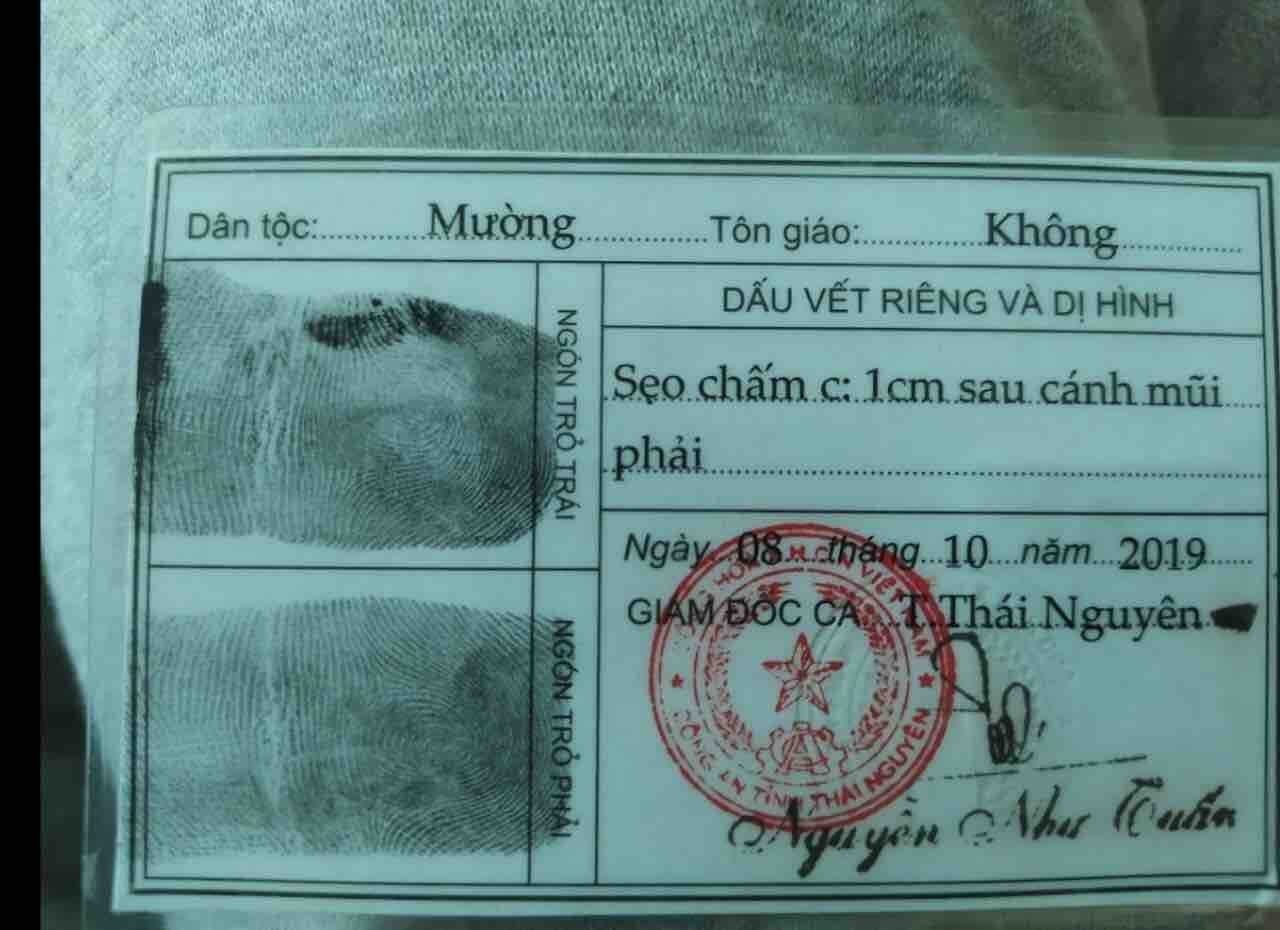 Dân tộc: Mường Tôn giáo: Không
NGÓN TRỎ TRÁI
NGÓN TRỎ PHẢI
DẤU VẾT RIÊNG VÀ DỊ HÌNH
Sẹo chấm c: 1cm sau cánh mũi
phải
Ngày 08 tháng 10 năm 2019
GIÁM ĐỐC CA T.Thái Nguyên
VIỆT NAM
CÔNG AN TỈNH THÁI NGUYÊN
Nguyễn Như Tuấn